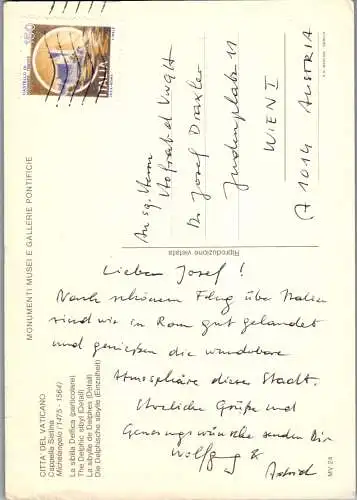 CITTÀ DEL VATICANO
Cappella Sistina
Michelangelo (1475 - 1564)
La sibilla Delfica (particolare)
The Delphic sibyl (Detail)
La sibylle de Delphes (Détail)
Die Delphische sibylle (Einzelheit)
MONUMENTI MUSEI E GALLERIE PONTIFICIE
Riproduzione vietata
MV 24
CASTELLO DI
ITALIA
An sg. Herrn
Hofrat d VwGH
Dr Josef Draxler
Judenplatz 11
WIEN I
A 1014 AUSTRIA
Lieber Josef!
Nach schönem Flug über Italien
sind wir in Rom gut gelandet
und genießen die wunderbare
Atmosphäre dieser Stadt.
Herzliche Grüße und
Genesungswünsche senden Dir
Wolfgang &
Astrid